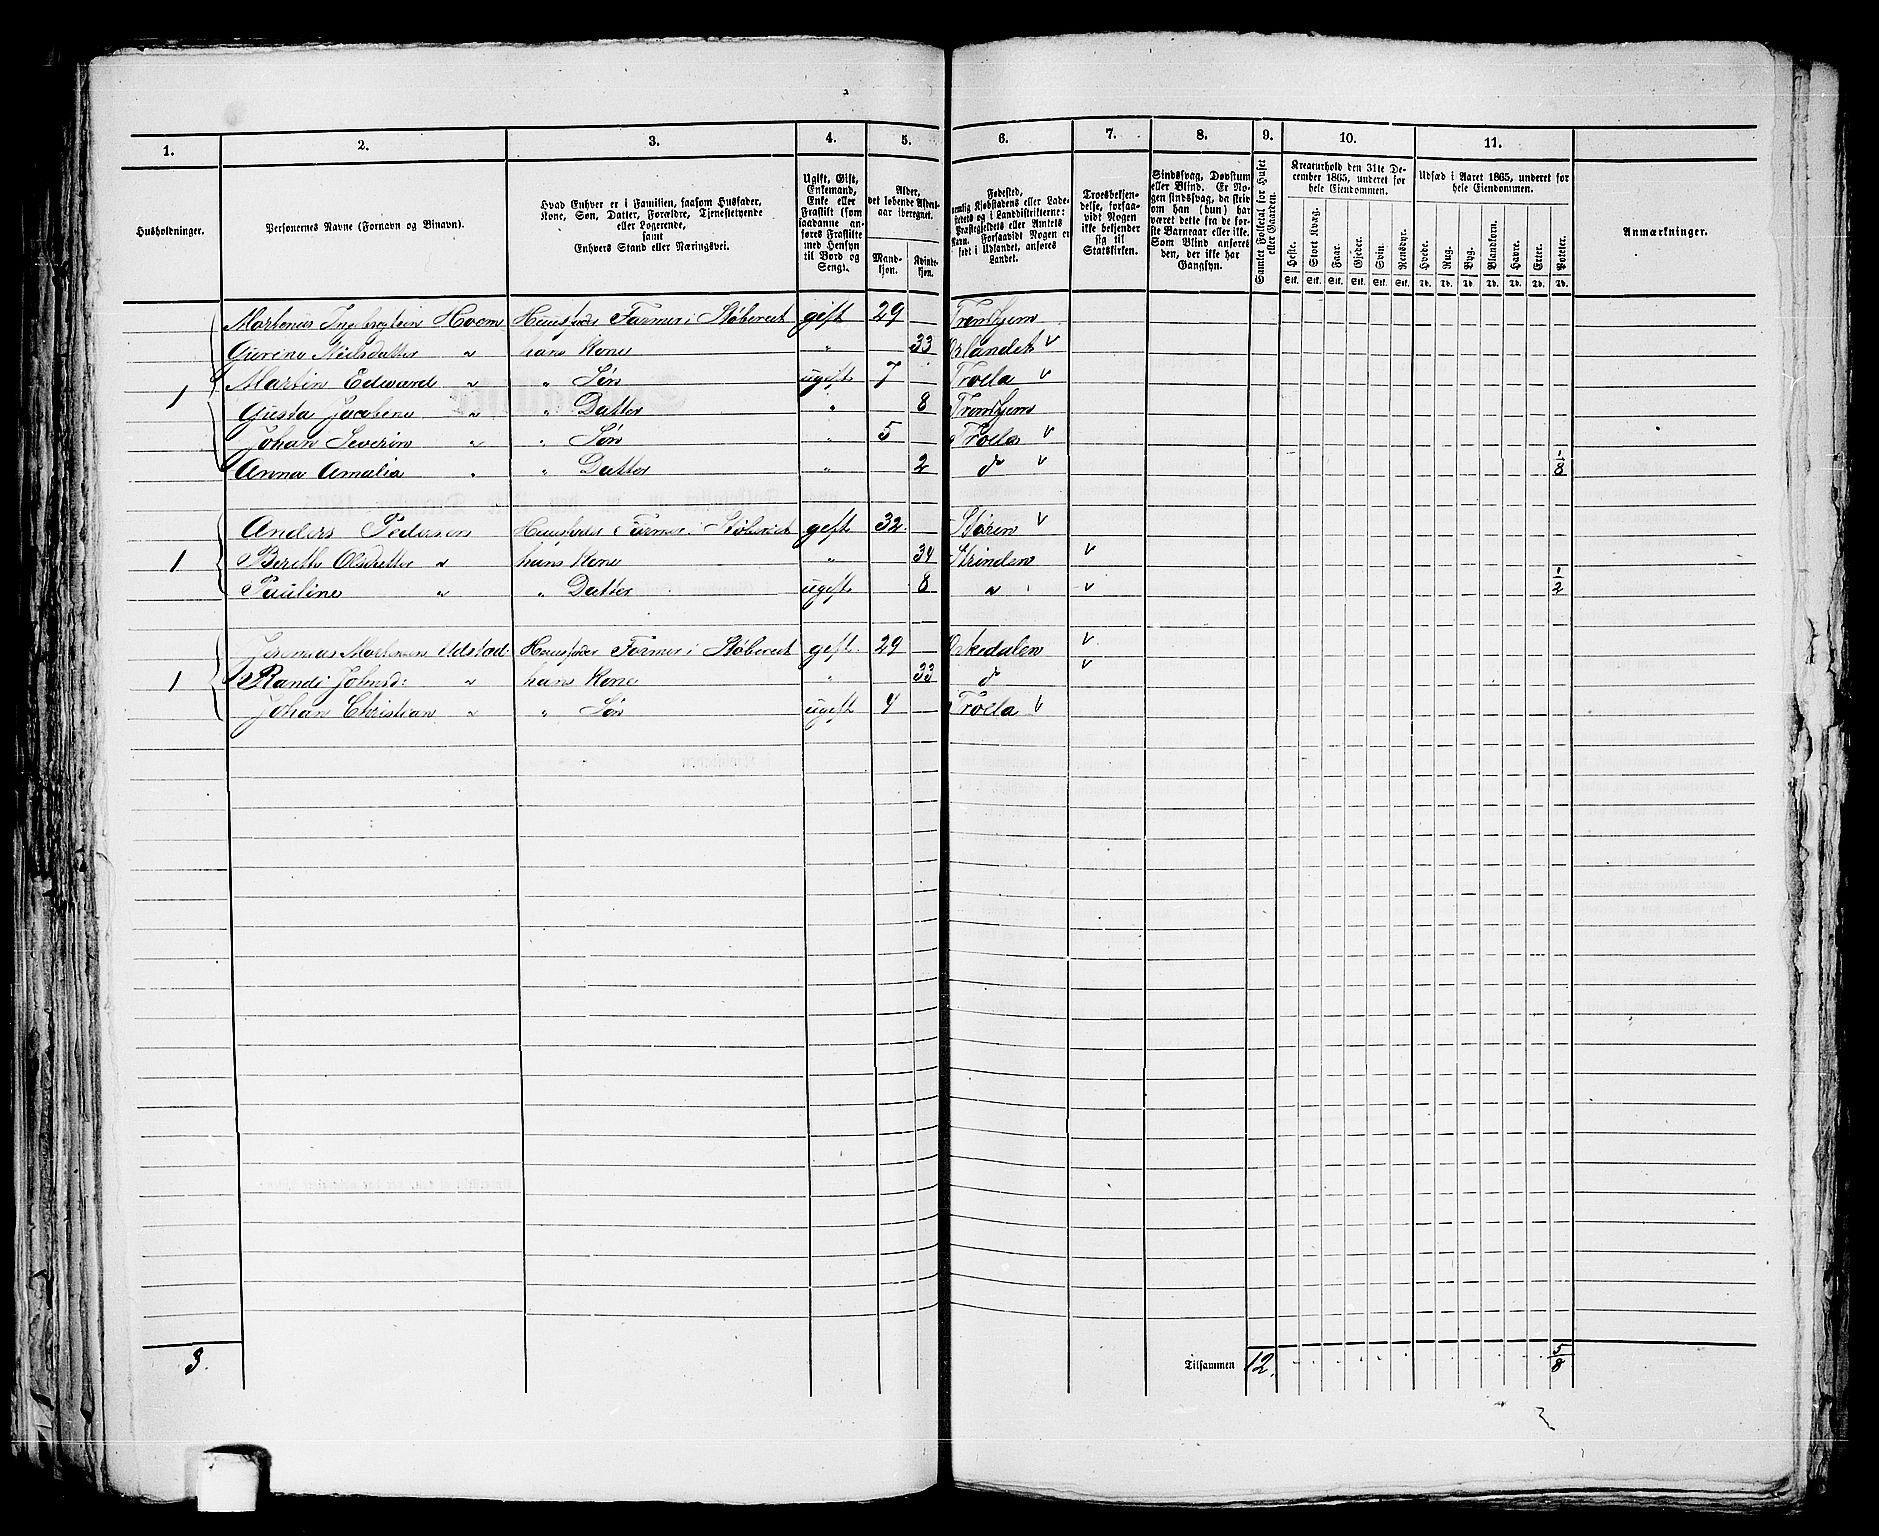 1. 2. 3. 4. 5. 6. 7. 8. 9. 10. 11.
Husholdninger.
Personernes Navne (Fornavn og Binavn).
Hvad Enhver er i Familien, saasom Husfader, Kone, Søn, Datter, Forældre, Tjenestetyende eller Logerende, samt Enhvers Stand eller Næringsvei.
Ugift, Gift, Enkemand, Enke eller Fraskilt (som saadanne anføres Fraskilte med Hensyn til Bord og Seng).
Alder, det løbende Aldersaar iberegnet.
Mandkjøn. Kvindekjøn.
Fødested, nemlig Kjøbstadens eller Ladestedets og i Landdistrikterne: Præstegjeldets eller Amtets Navn. Forsaavidt Nogen er født i Udlandet, anføres Landet.
Troesbekjendelse, forsaavidt Nogen ikke bekjender sig til Statskirken.
Sindssvag, Døvstum eller Blind. Er Nogen sindssvag, da skriv om han (hun) har været dette fra de første Barneaar eller ikke. Som Blind anføres den, der ikke har Gangsyn.
Samlet Folketal for Huset eller Gaarden.
Kreaturhold den 31te December 1865, underet for hele Eiendommen.
Heste. Stort Kvæg. Faar. Gjeder. Svin. Rensdyr.
Stk. Stk. Stk. Stk. Stk. Stk.
Udsæd i Aaret 1865, underet for hele Eiendommen.
Hvede. Rug. Byg. Blandkorn. Havre. Erter. Poteter.
Td. Td. Td. Td. Td. Td. Td.
Anmærkninger.
Hoem Huusfader Former i Støberiet gift 29 Trondhjem
Gurine Nielsdatter " hans Kone " 33 Ørlandet v
Martin Edward " " Søn ugift 7 Froela v
1 Gusta Jacobine " " Datter " 8 Trondhjem
Johan Severin " " Søn " 5 Froela v
Anna Amalia " " Datter " 2 do v 1/8
Anders Pedersen Huusfader Former i Støberiet gift 32 Støren v
1 Berethe Olsdatter " hans Kone " 34 Strinden v
Pauline " " Datter ugift 8 " v 1/2
Huusfader Former i Støberiet gift 29 Orkedalen v
1 Randi Johnsd: " hans Kone " 33 do v
Johan Christian " " Søn ugift 4 Froela v
3. Tilsammen 12. 5/8